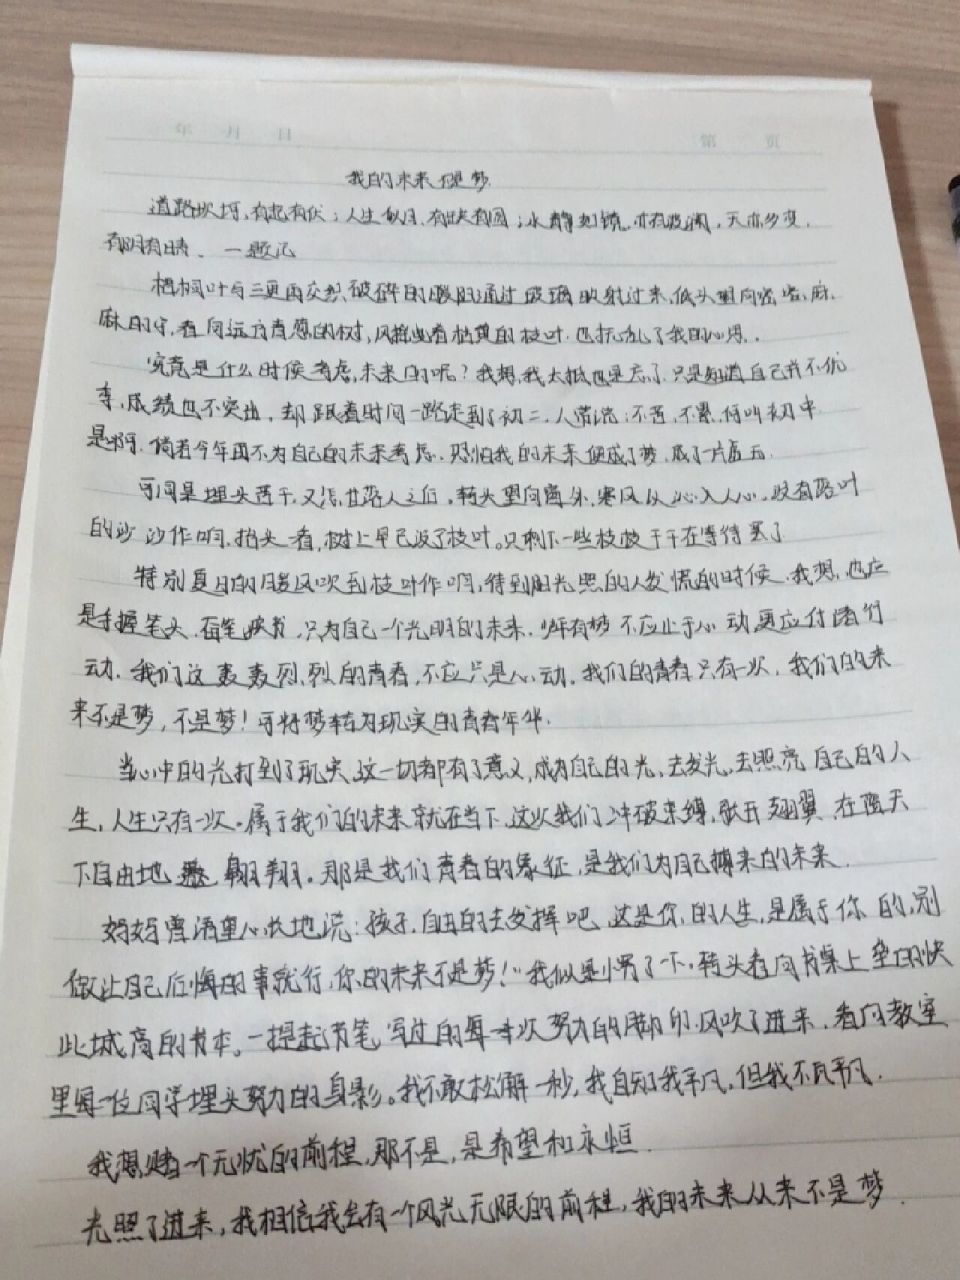 年 月 日 第 页
我的未来不是梦
道路坎坷,有起有伏;人生似月,有缺有圆;水静如镜,亦有波澜,天亦多变,
有阴有晴。一题记
梧桐叶与三更雨交织,破碎的暖阳通过玻璃映射过来,低头望向密密麻
麻的字,看向远方青葱的树,风摇曳着枯黄的枝叶,也扰乱了我的心思。
究竟是什么时候考虑,未来的呢?我想,我大抵也是忘了,只是知道自己并不优
秀,成绩也不突出,却跟着时间一路走到了初二,人常说:不苦,不累,何叫初中
是啊,倘若今年再不为自己的未来考虑,恐怕我的未来便成了梦,成了片虚无.
可问是埋头苦干,又怎甘落人之后,转头望向窗外,寒风从心入人心,没有落叶
的沙沙作响,抬头一看,树上早已没了枝叶。只剩下一些枝枝干干在等待罢了
特别夏日的暖风吹到枝叶作响,待到阳光照的人发慌的时候,我想,也应
是手握笔头,奋笔疾书,只为自己一个光明的未来,少年有梦不应止于心动,更应付诸行
动,我们这轰轰烈烈的青春,不应只是心动,我们的青春只有一次,我们的未
来不是梦,不是梦!可将梦转为现实的青春年华.
当心中的光打到了现实,这一切都有了意义,成为自己的光,去发光,去照亮自己的人
生,人生只有一次。属于我们的未来就在当下,这次我们冲破束缚,张开翅翼在蓝天
下自由地翱翔。那是我们青春的象征,是我们为自己搏来的未来.
妈妈曾语重心长地说:孩子,自由的去发挥吧,这是你的人生,是属于你的,别
做让自己后悔的事就行,你的未来不是梦!"我似是愣了一下,转头看向书桌上垒的快
比城高的书本。一提起青笔,写过的每一次努力的脚印,风吹了进来,看向教室
里每一位同学埋头努力的身影。我不敢松懈一秒,我自知我平凡,但我不凡.
我想,赌一个无忧的前程,那不是,是希望和永恒.
光照了进来,我相信我会有一个风光无限的前程,我的未来从来不是梦.